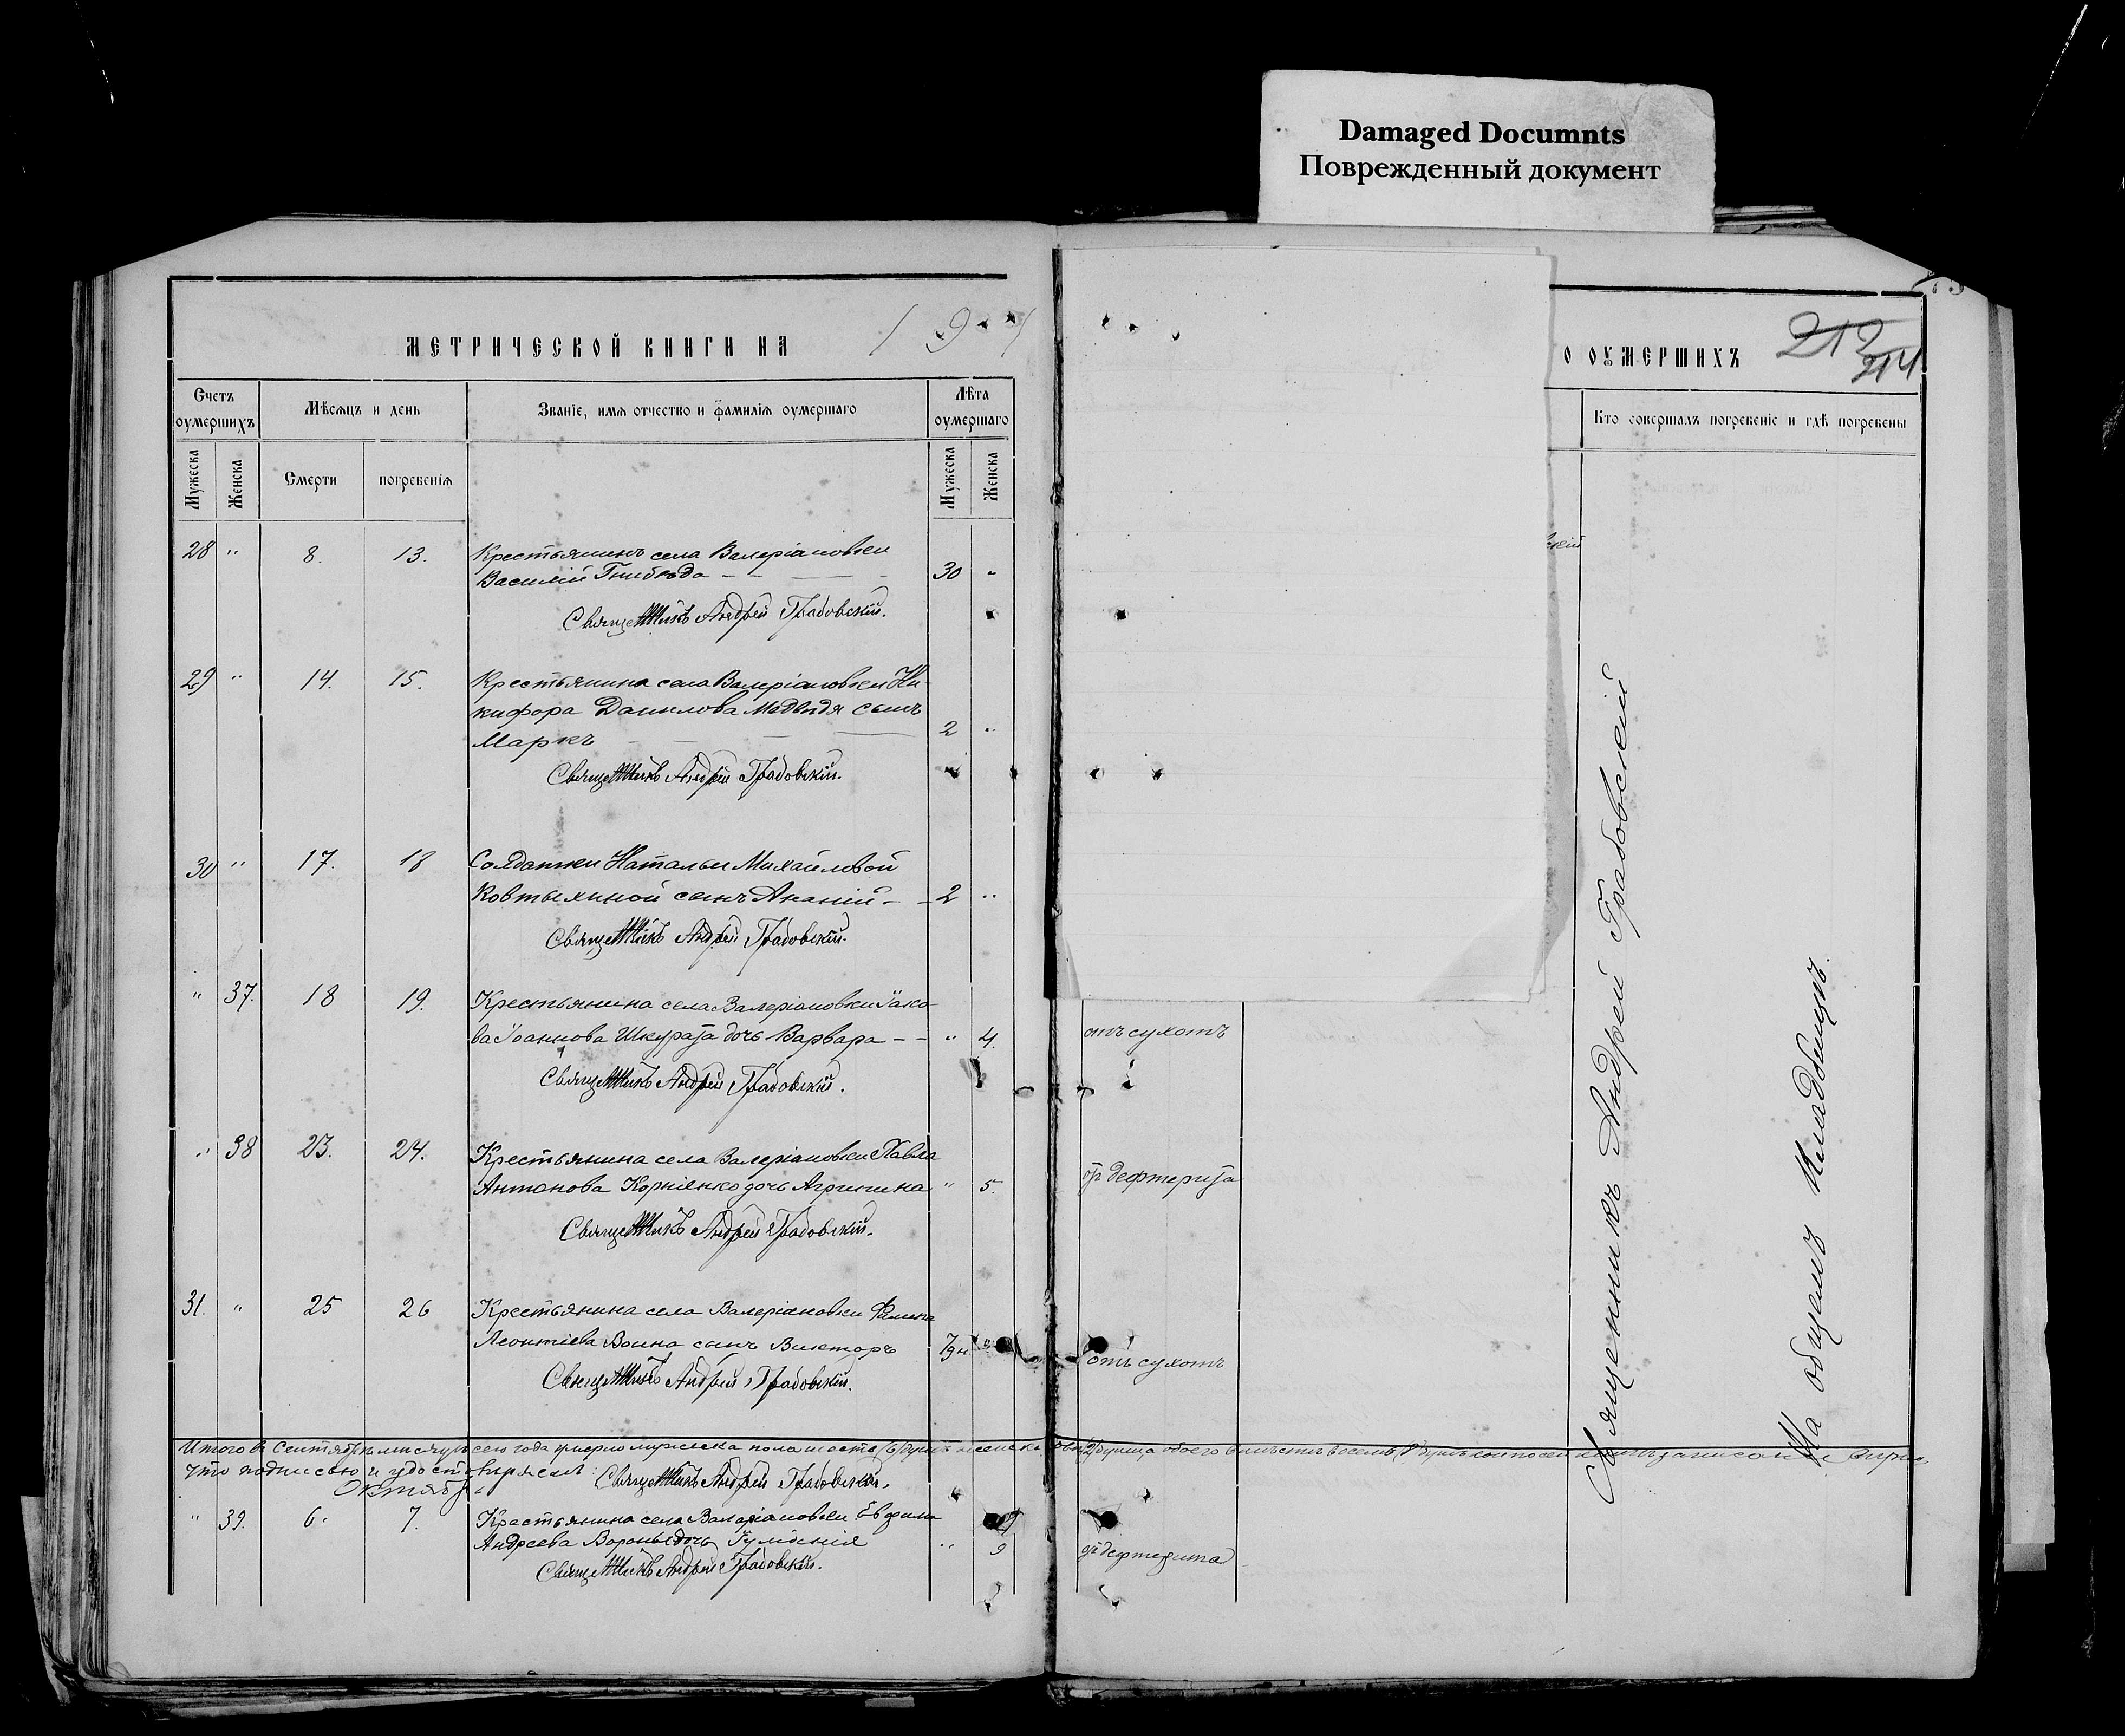 Damaged Documnts
Поврежденный документ
МЕТРИЧЕСКОЙ КНИГИ НА 19
О ОУМЕРШИХЪ
212
214
Счетъ оумершихъ
Мѣсяцъ и день
Званіе, имя отчество и фамилія оумершаго
Лѣта оумершаго
Кто совершалъ погребеніе и гдѣ погребены
Мужеска
Женска
Смерти
погребенія
Мужеска
Женска
28 " 8. 13. Крестьянинъ села Валеріановки
Василій 30 "
Священникъ Андрей Грабовскій.
29 " 14. 15. Крестьянина села Валеріановки Ни-
кифора Данилова Медвѣдя сынъ
Маркъ 2 "
Священникъ Андрей Грабовскій.
30 " 17. 18 Солдатки Натальи Михайловой
Ковтыхиной сынъ Ананій 2 "
Священникъ Андрей Грабовскій.
" 37. 18 19. Крестьянина села Валеріановки Іако-
ва Іоаннова Шкурата дочь Варвара " 4. отъ сухотъ
Священникъ Андрей Грабовскій.
" 38 23. 24. Крестьянина села Валеріановки Павла
Антонова Корніенко дочь Агрипина " 5. от дефтерита
Священникъ Андрей Грабовскій.
31. " 25 26 Крестьянина села Валеріановки
Леонтіева сынъ Викторъ отъ сухотъ
Священникъ Андрей Грабовскій.
Итого въ Сентябрѣ мѣсяцѣ сего года умерло мужеска пола шесть (6) душъ женска двѣ (2) душъ, обоего вмѣстѣ восемь (8) душъ
что подписью и удостовѣряемъ: Священникъ Андрей Грабовскій.
Октябрь
" 39. 6. 7. Крестьянина села Валеріановки Евфима
Андреева дочь " 9 от дефтерита
Священникъ Андрей Грабовскій.
Священникъ Андрей Грабовскій
На общемъ кладбищѣ.